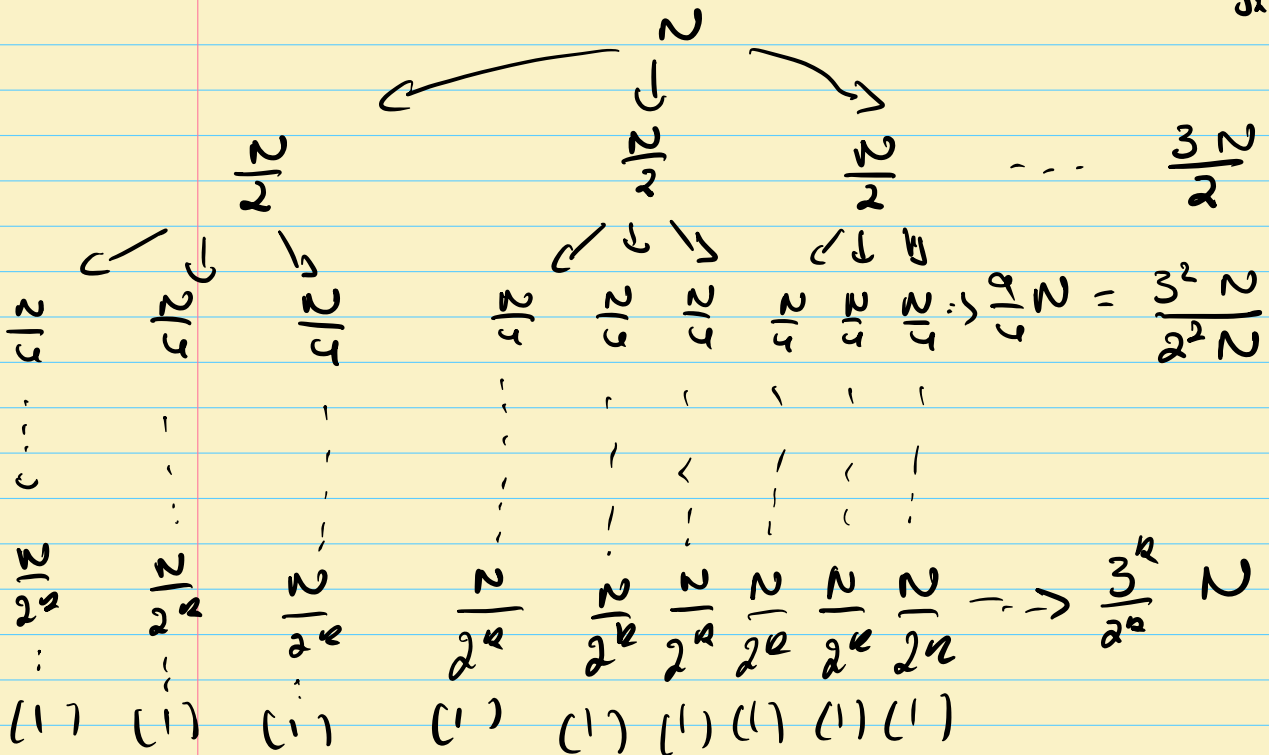 N
N/2 N/2 N/2 .... 3N/2
N/4 N/4 N/4 N/4 N/4 N/4 N/4 N/4 N/4 :> 9/4 N = 3² N / 2² N
N/2ᵏ N/2ᵏ N/2ᵏ N/2ᵏ N/2ᵏ N/2ᵏ N/2ᵏ N/2ᵏ N/2ᵏ --> 3ᵏ/2ᵏ N
(1) (1) (1) (1) (1) (1) (1) (1) (1)